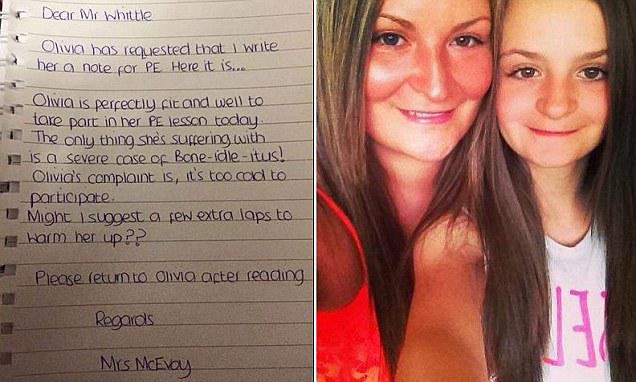 Dear Mr Whittle
Olivia has requested that I write
her a note for PE Here it is...
Olivia is perfectly fit and well to
take part in her PE lesson today
The only thing she's suffering with
is a severe case of Bone-idle-itus!
Olivia's complaint is, it's too cold to
participate.
Might I suggest a few extra laps to
warm her up??
Please return to Olivia after reading
Regards
Mrs McEvoy